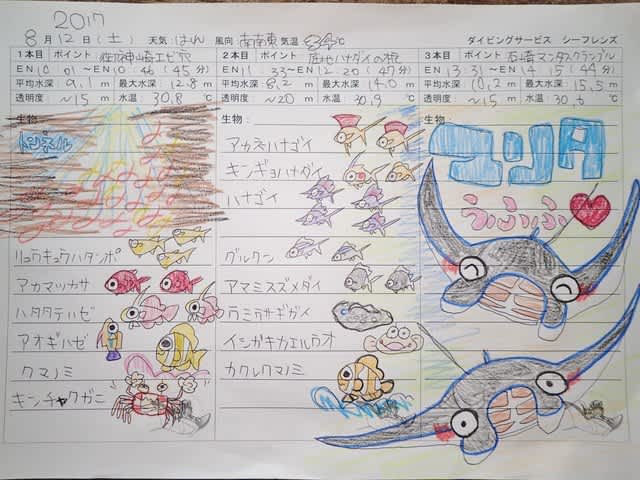 2017
8月12日(土) 天気:はれ 風向 南南東 気温 ℃ ダイビングサービス シーフレンズ
1本目 ポイント 神崎エビ穴
2本目 ポイント ハナダイの根
3本目 ポイント 石崎マンタスクランブル
EN10 01～EN10 46(45分)
EN11 33～EN12 20(47分)
EN13 31～EN14 15(44分)
平均水深:9.1m 最大水深:12.8m
平均水深:8.2m 最大水深:14.0m
平均水深:10.2m 最大水深:15.5m
透明度 ～15m 水温:30.8℃
透明度 ～20m 水温:30.9℃
透明度 ～15m 水温:30.6℃
生物:
トンネル
リュウキュウハタンポ
アカマツカサ
ハタタテハゼ
アオギハゼ
クマノミ
キンチャクガニ
生物:
アカネハナゴイ
キンギョハナダイ
ハナゴイ
グルクン
アマミスズメダイ
ウミウサギガイ
イシガキカエルウオ
カクレクマノミ
生物:
マンタ
うふふふ